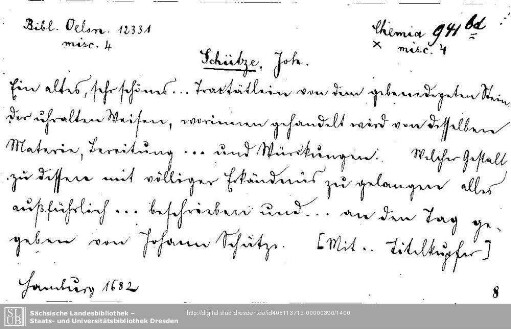 Bibl. Oelsn. 12331
misc. 4
Chemia 941 bd
x misc. 4
Schütze, Joh.
Ein altes, sehr schönes... Tractätlein von dem gebenedeyeten Stein
der uhralten Weisen, worinnen gehandelt wird von desselben
Materie, Bereitung ... und Würckungen. Welcher Gestalt
zu dessen mit völliger Erkändnüs zu gelangen alles
außführlich ... beschrieben und ... an den Tag ge-
geben von Johann Schütze. [Mit .. Titelkupfer]
Hamburg 1682
8
Sächsische Landesbibliothek –
Staats- und Universitätsbibliothek Dresden